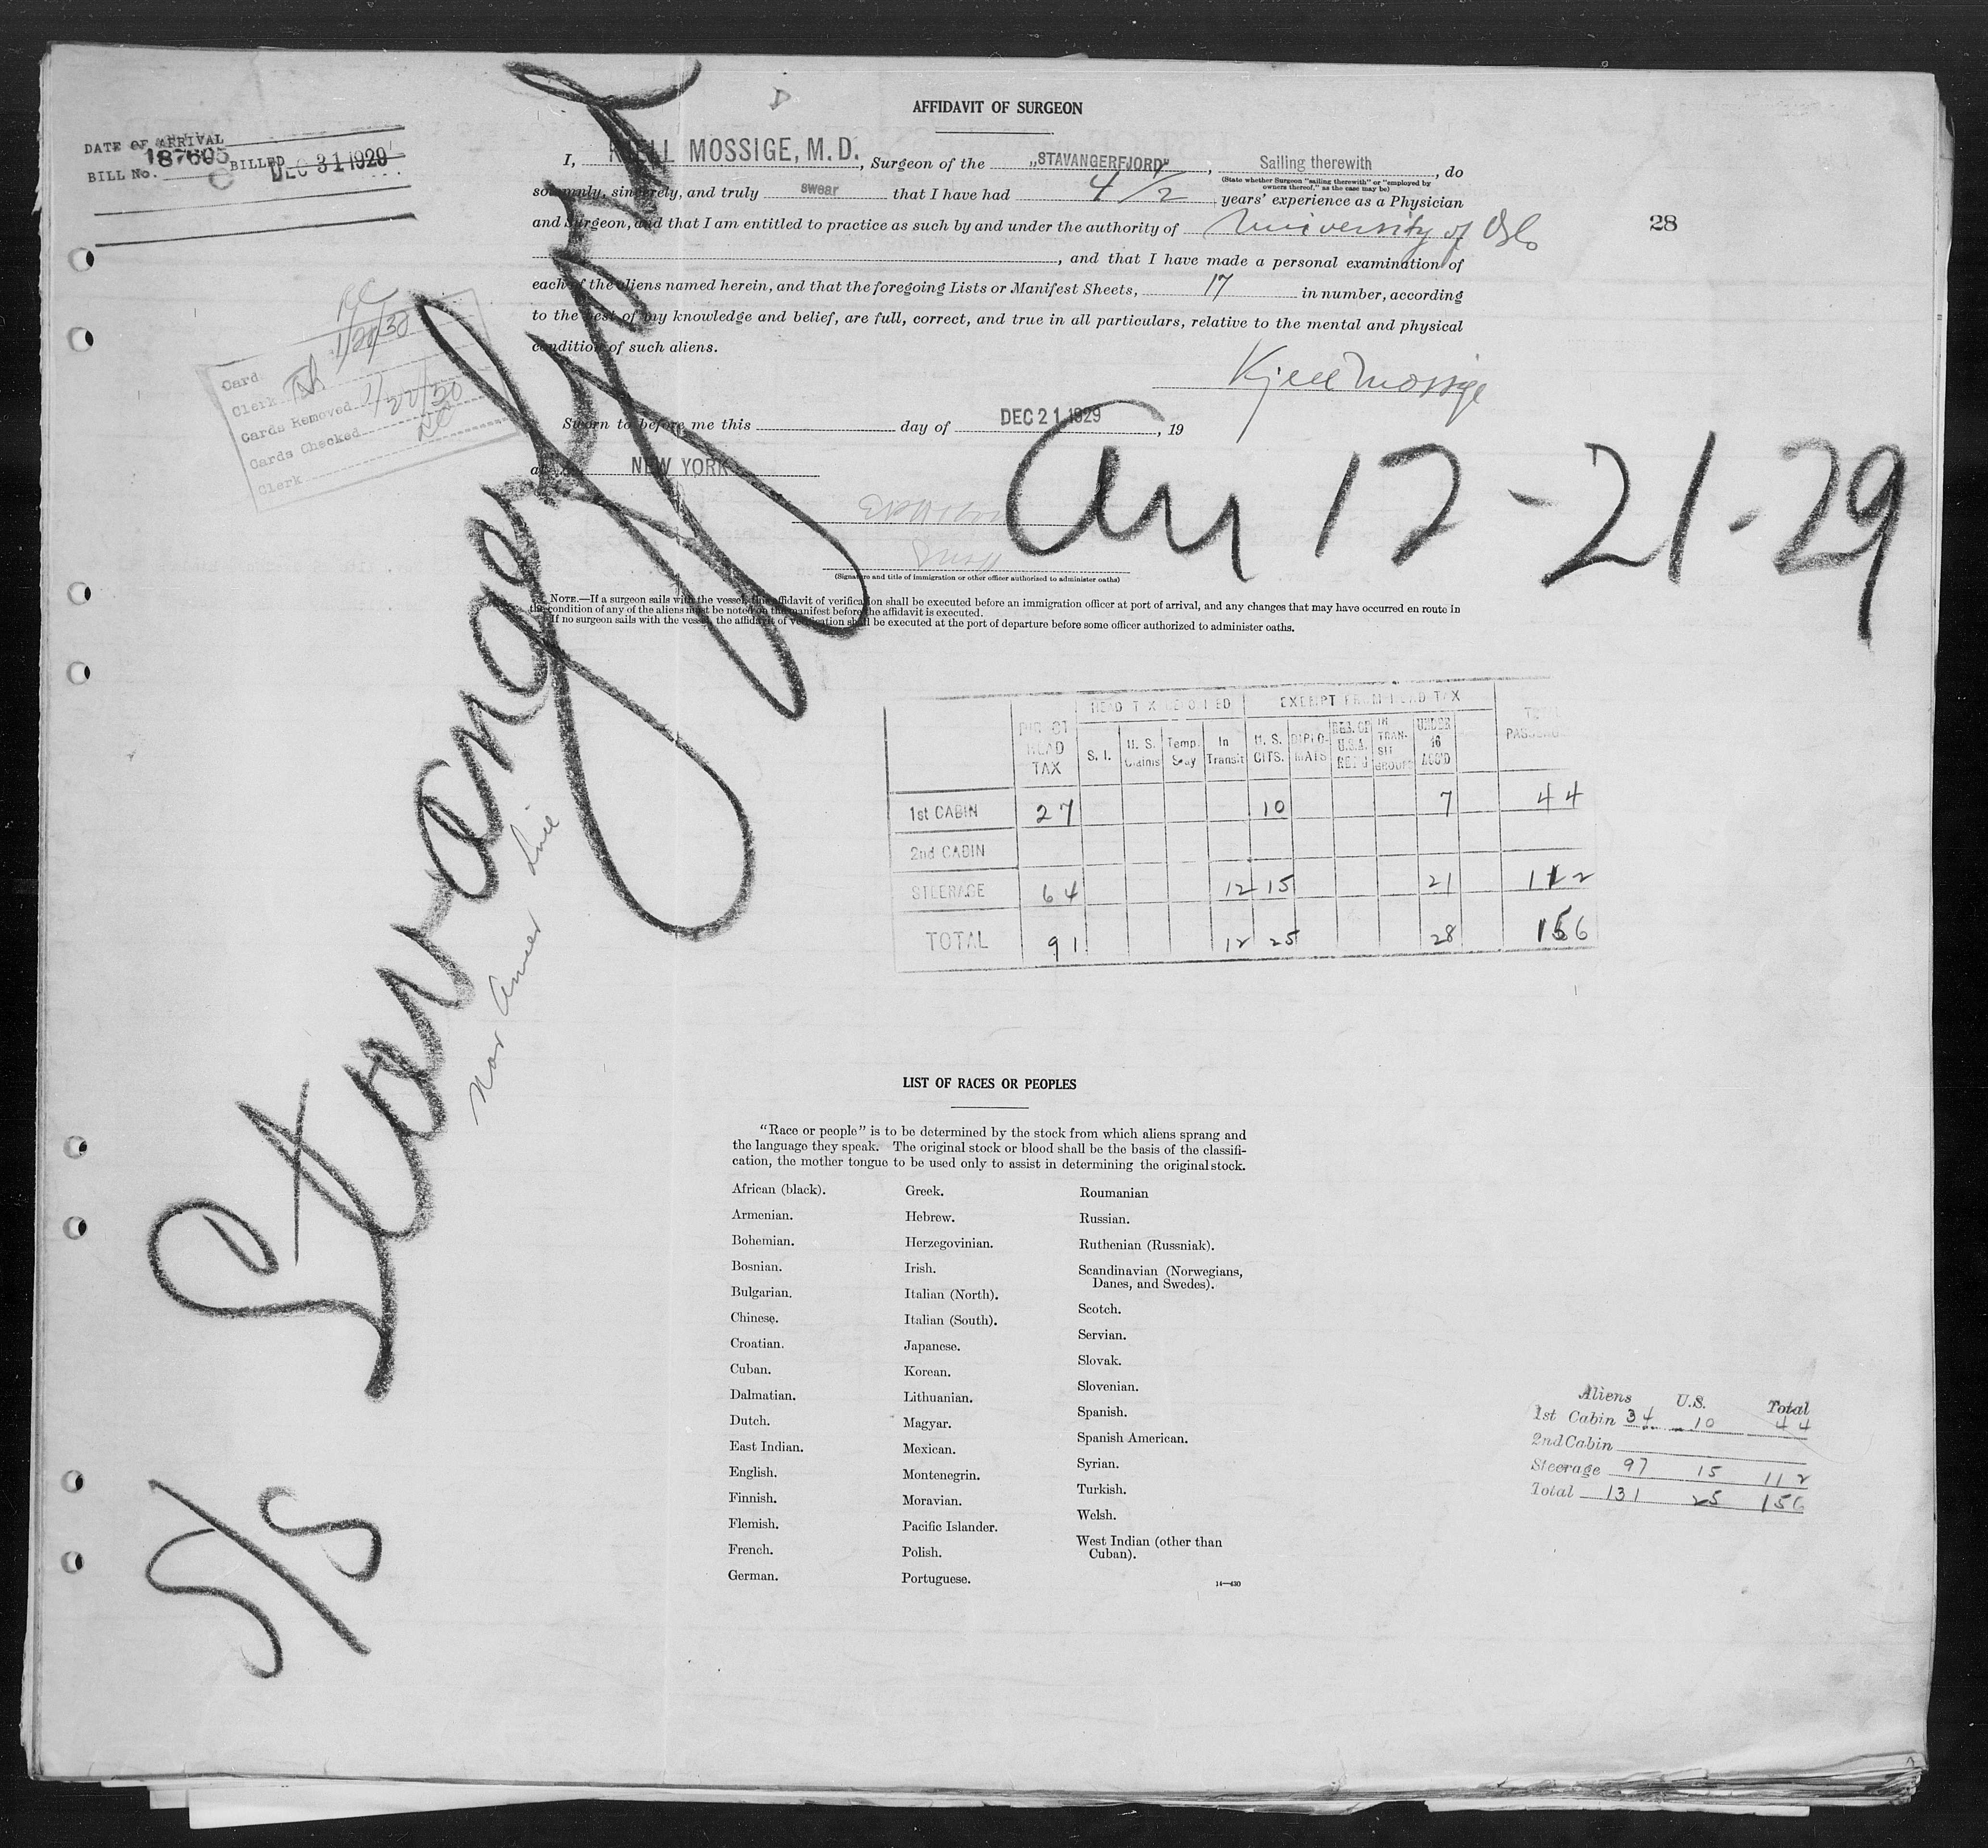 AFFIDAVIT OF SURGEON
DATE OF ARRIVAL
BILL No. 187605 BILLED DEC 31 1929
I, KJELL MOSSIGE, M.D., Surgeon of the „STAVANGERFJORD", Sailing therewith, do
(State whether Surgeon "sailing therewith" or "employed by
owners thereof," as the case may be)
solemnly, sincerely, and truly swear that I have had 4 1/2 years' experience as a Physician
and Surgeon, and that I am entitled to practice as such by and under the authority of University of Oslo
28
, and that I have made a personal examination of
each of the aliens named herein, and that the foregoing Lists or Manifest Sheets, 17 in number, according
to the best of my knowledge and belief, are full, correct, and true in all particulars, relative to the mental and physical
condition of such aliens.
Kjell Mossige
1/20/30
Card
Clerk
Cards Removed 1/20/30
Cards Checked
Clerk
Sworn to before me this day of DEC 21 1929, 19
at NEW YORK
Arr 12-21-29
(Signature and title of immigration or other officer authorized to administer oaths)
NOTE.—If a surgeon sails with the vessel, this affidavit of verification shall be executed before an immigration officer at port of arrival, and any changes that may have occurred en route in
the condition of any of the aliens must be noted on the manifest before the affidavit is executed.
If no surgeon sails with the vessel, the affidavit of verification shall be executed at the port of departure before some officer authorized to administer oaths.
S/S Stavangerfjord
Nor Amer Line
HEAD TAX DEPOSITED EXEMPT FROM HEAD TAX
DIRECT HEAD TAX S. I. U. S. Claims Temp. Stay In Transit U. S. CITS. DIPLO-MATS RES. OF U.S.A. RET'G IN TRAN-SIT GROUPS UNDER 16 ACC'D TOTAL PASSENGERS
1st CABIN 27 10 7 44
2nd CABIN
STEERAGE 64 12 15 21 112
TOTAL 91 12 25 28 156
LIST OF RACES OR PEOPLES
"Race or people" is to be determined by the stock from which aliens sprang and
the language they speak. The original stock or blood shall be the basis of the classifi-
cation, the mother tongue to be used only to assist in determining the original stock.
African (black).
Armenian.
Bohemian.
Bosnian.
Bulgarian.
Chinese.
Croatian.
Cuban.
Dalmatian.
Dutch.
East Indian.
English.
Finnish.
Flemish.
French.
German.
Greek.
Hebrew.
Herzegovinian.
Irish.
Italian (North).
Italian (South).
Japanese.
Korean.
Lithuanian.
Magyar.
Mexican.
Montenegrin.
Moravian.
Pacific Islander.
Polish.
Portuguese.
Roumanian
Russian.
Ruthenian (Russniak).
Scandinavian (Norwegians,
Danes, and Swedes).
Scotch.
Servian.
Slovak.
Slovenian.
Spanish.
Spanish American.
Syrian.
Turkish.
Welsh.
West Indian (other than
Cuban).
14—430
Aliens U.S. Total
1st Cabin 34 10 44
2nd Cabin
Steerage 97 15 112
Total 131 25 156